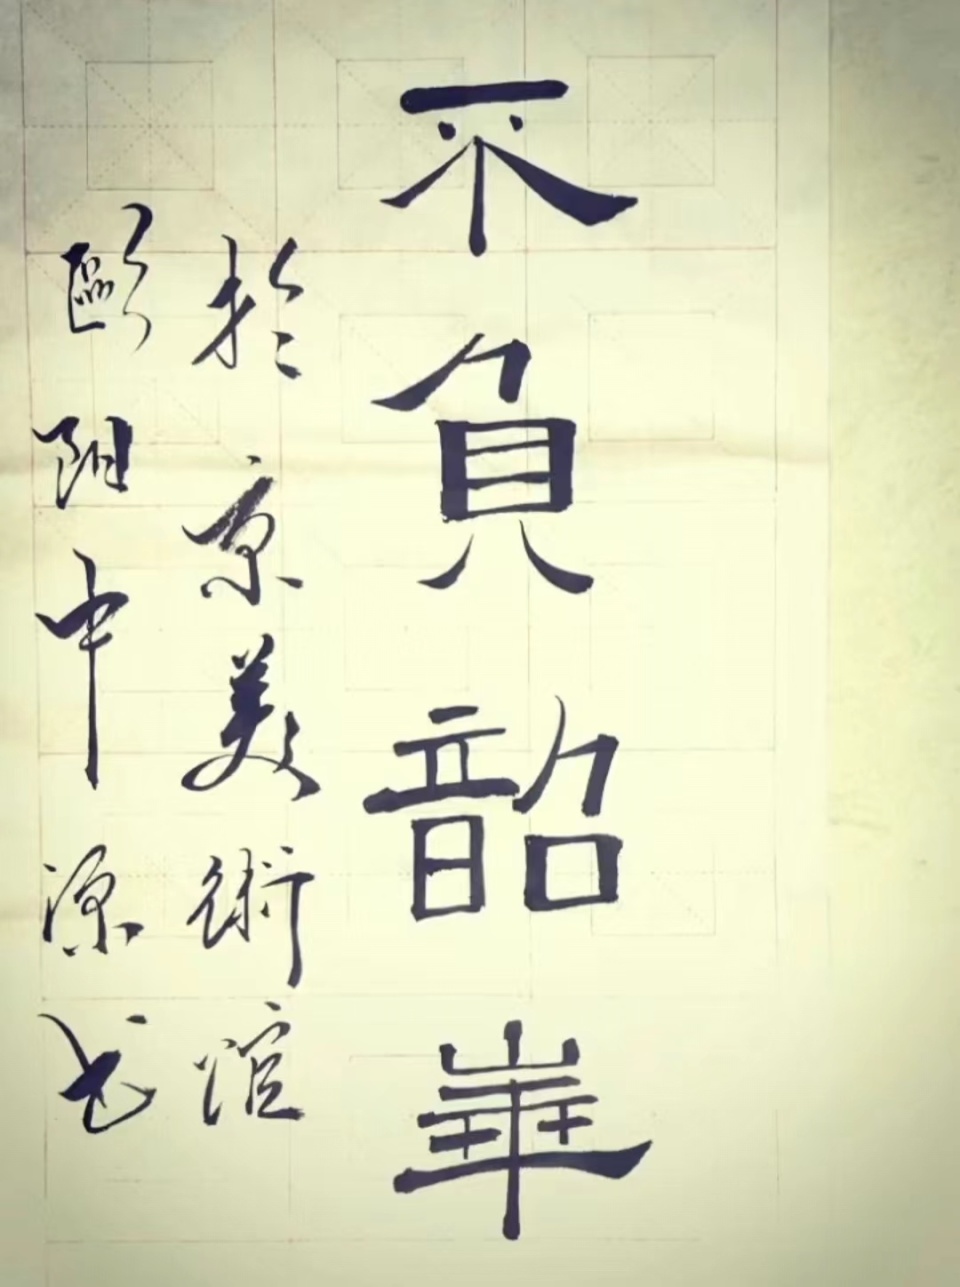 不負韶華
於京美術館
歐陽中源书